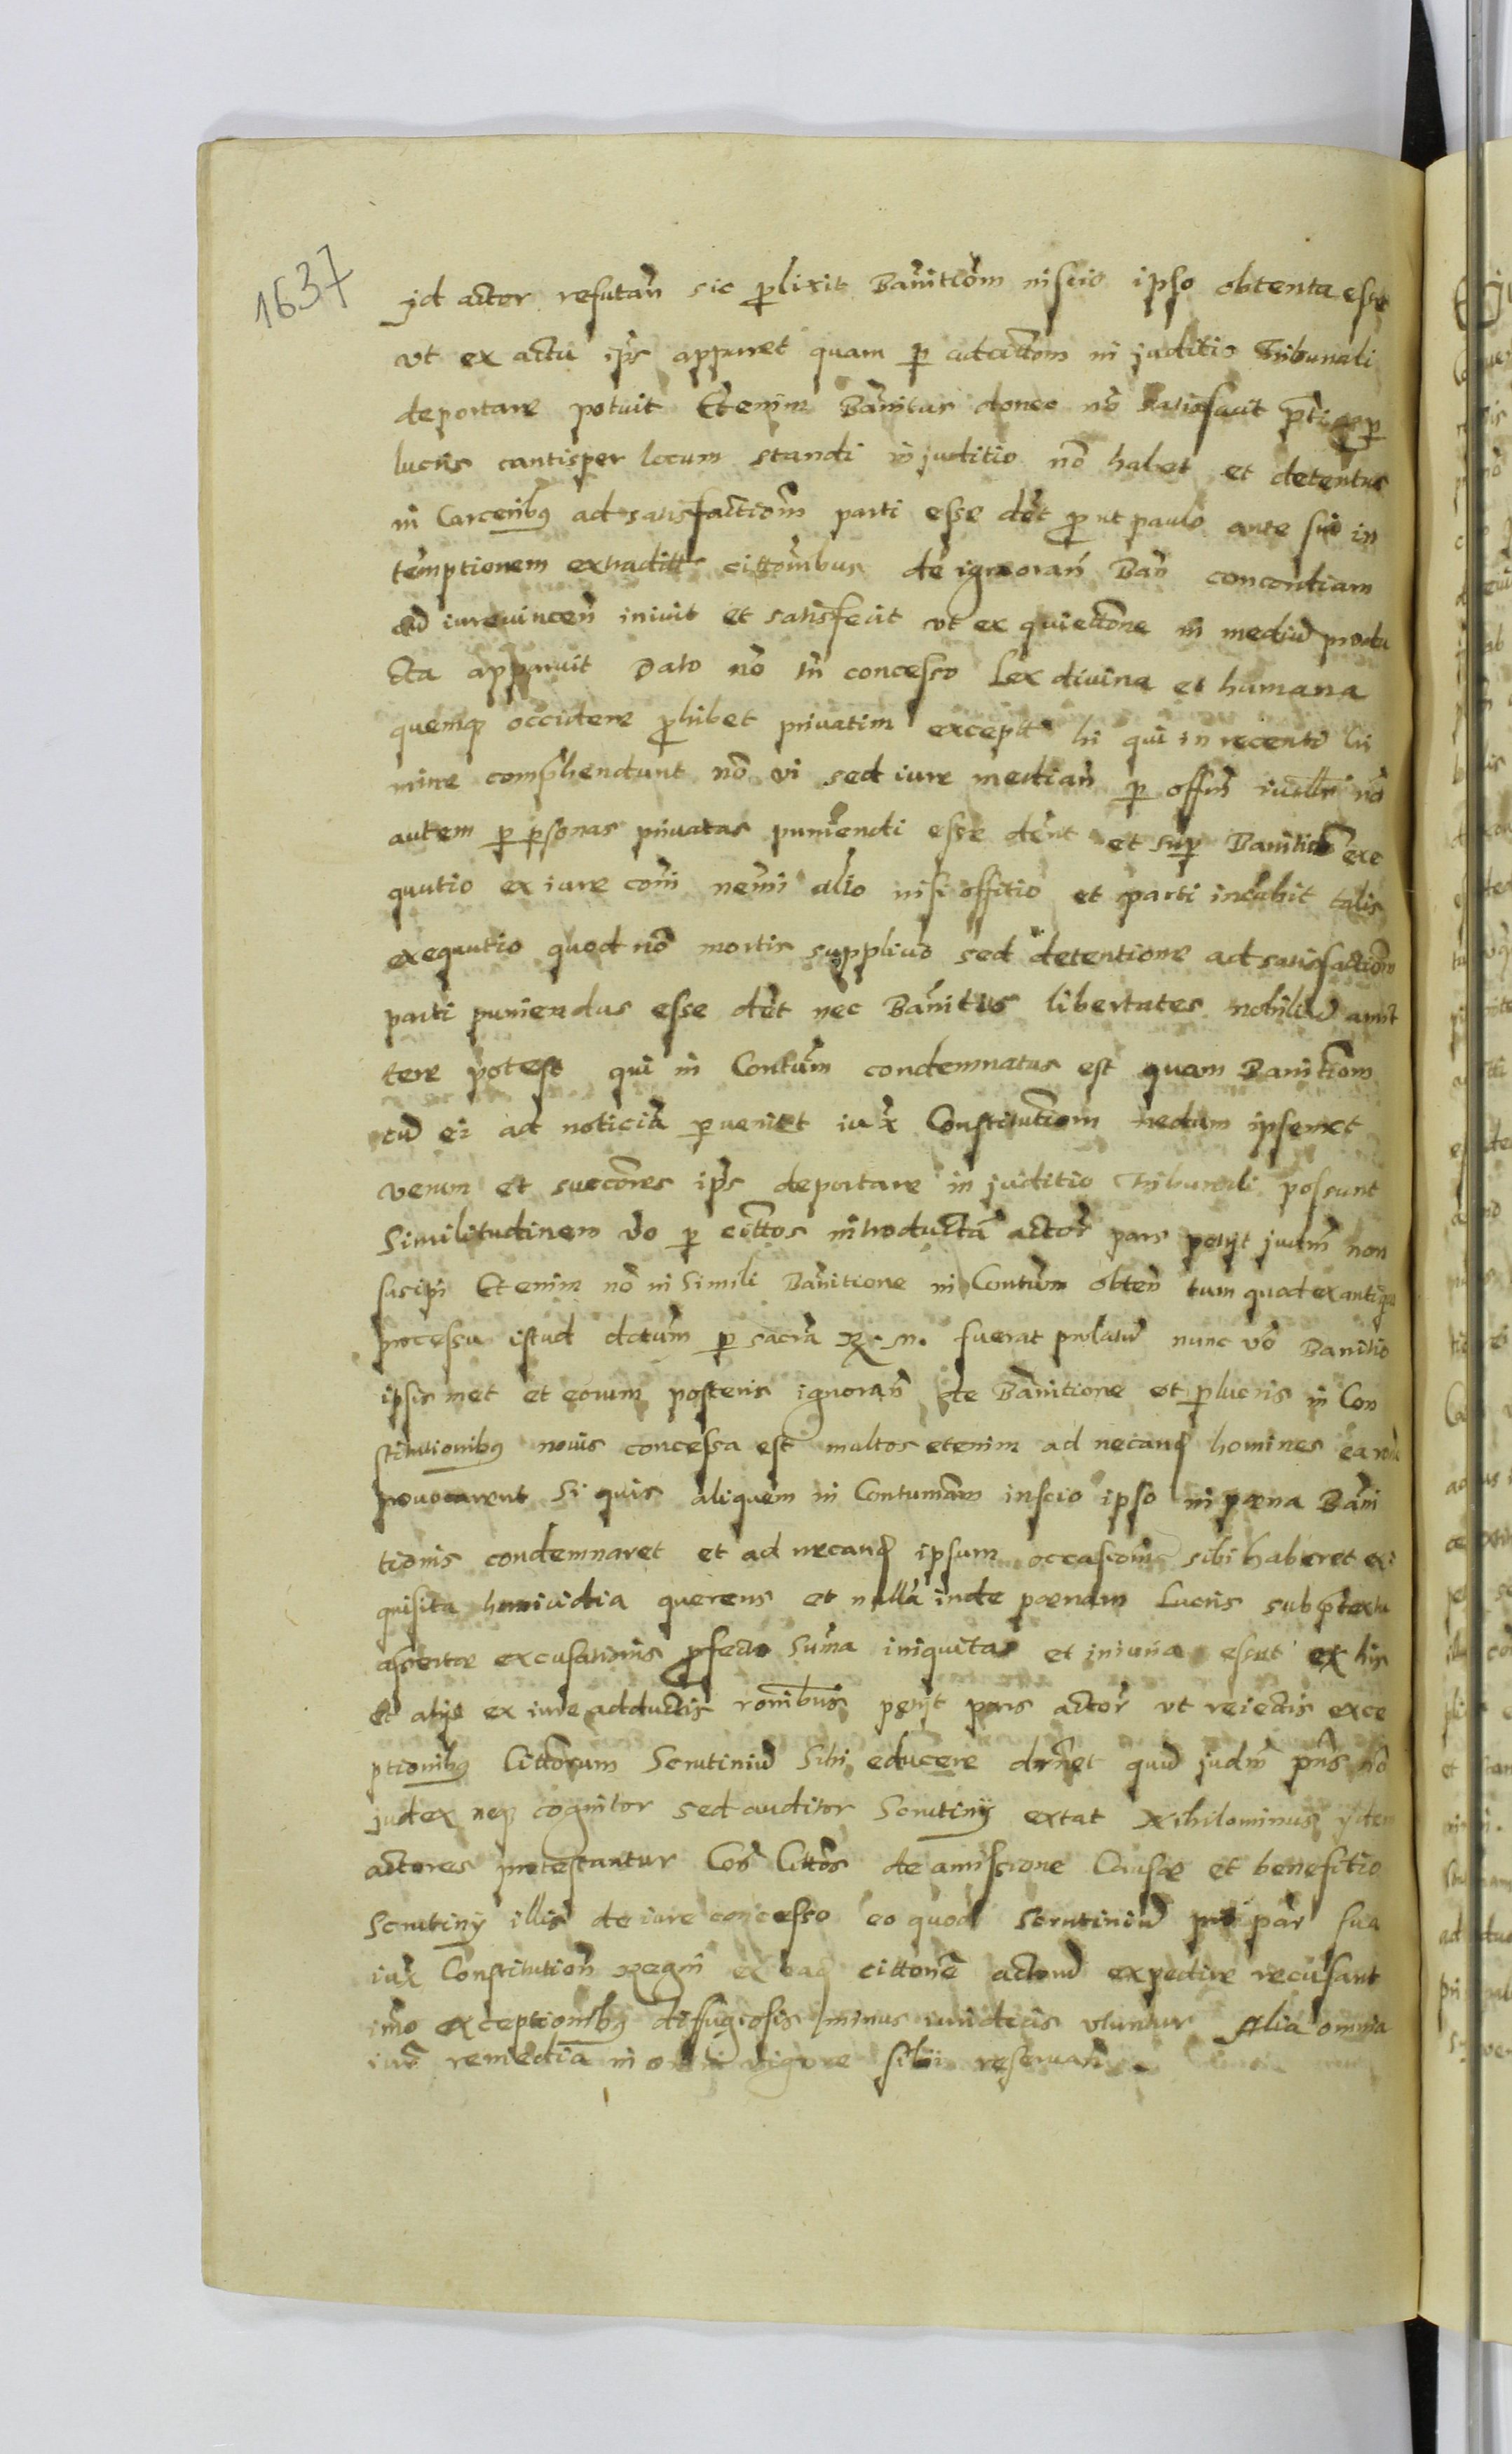 1637
jd actor refutan̄ sic p̱lixit Banitiom̄ inscio ipso obtenta esse
vt ex actu ip̄s apparet quam p̱ in juditio Tribunali
deportare potuit Etenim Banitus donec nō satisfacit p̄ti p̱
lucris tantisper locum standi in juditio nō habet et detentus
in Carcerib9 ad satisfactiom̄ parti esse dēt p̱ut paulo ante suā in
temptionem citōnibus de ignoran̄ Ban̄ concordiam
cū iurevincen̄ inivit et satisfecit vt ex quiettōne in mediū produ
cta apparuit Dato nō tn̄ concesso Lex divina et humana
quemq3 occidere p̱hibet privatim exceptt hi qui in recenti cri
mine comp̱hendunt nō vi sed iure median̄ p̱ offm̄ nō
autem p̱ p̱sonas privatas puniendi esse dēnt et sup̱ Banitiom̄ exe
qvutio ex iure com̄i nemi alio nisi offitio et parti incūbit talis
exeqvutio quod nō mortis supplicio sed detentione ad satisfactiom̄
parti puniendus esse dēt nec Banitus libertates nobiliū amit
tere potest qui in Contum̄ condemnatus est quam Banitiom̄
cū ei ad noticiā p̱veniet iux̄ Constitutiom̄ nedum ipsemet
verum et succōres ip̄s deportare in juditio Tribunali possunt
Similitudinem v̄o p̱ cittos introductā actor̄ pars petijt judm̄ non
suscipi Etenim nō in simili Banitione in Contum̄ obten̄ tum quod ex antiquo
processu istud p̱ sacrā R. M. fuerat prolatū nunc v̄o Banitio
ipsis met et eorum posteris ignoran̄ de Banitione et p̱lucris in Con
stitutionib9 novis concessa est multos etenim ad necand homines ea
provocarent Si quis aliquem in Contumām inscio ipso in pœna Bani
tionis condemnaret et ad necand ipsum occasiom̄ sibi haberet ex
quisita homicidia querens et nullā inde pœnam Lucris sub p̱textu
assertæ excusationis p̱fecto Sum̄a iniquitas et iniuria esset ex his
et alijs ex iure adductis rōnibus petijt pars actor̄ vt reiectis exce
ptionib9 Cittōrum Scrutiniū Sibi educere quū judm̄ pn̄s nō
judex neq3 cognitor sed auditor Scrutinij extat Nihilominus ydem
actores protestantur Cōs Cittōs de amissione Causæ et benefitio
Scrutinij illis de iure concesso eo quod Scrutiniū pro par̄ sua
iux̄ Constitution̄ Regni ex citōne actorū expedire recusant
imo exceptionib9 diffugiosis minus iuridicis vtuntur Alia omnia
iur̄ remedia in omni vigore sibi reservan̄